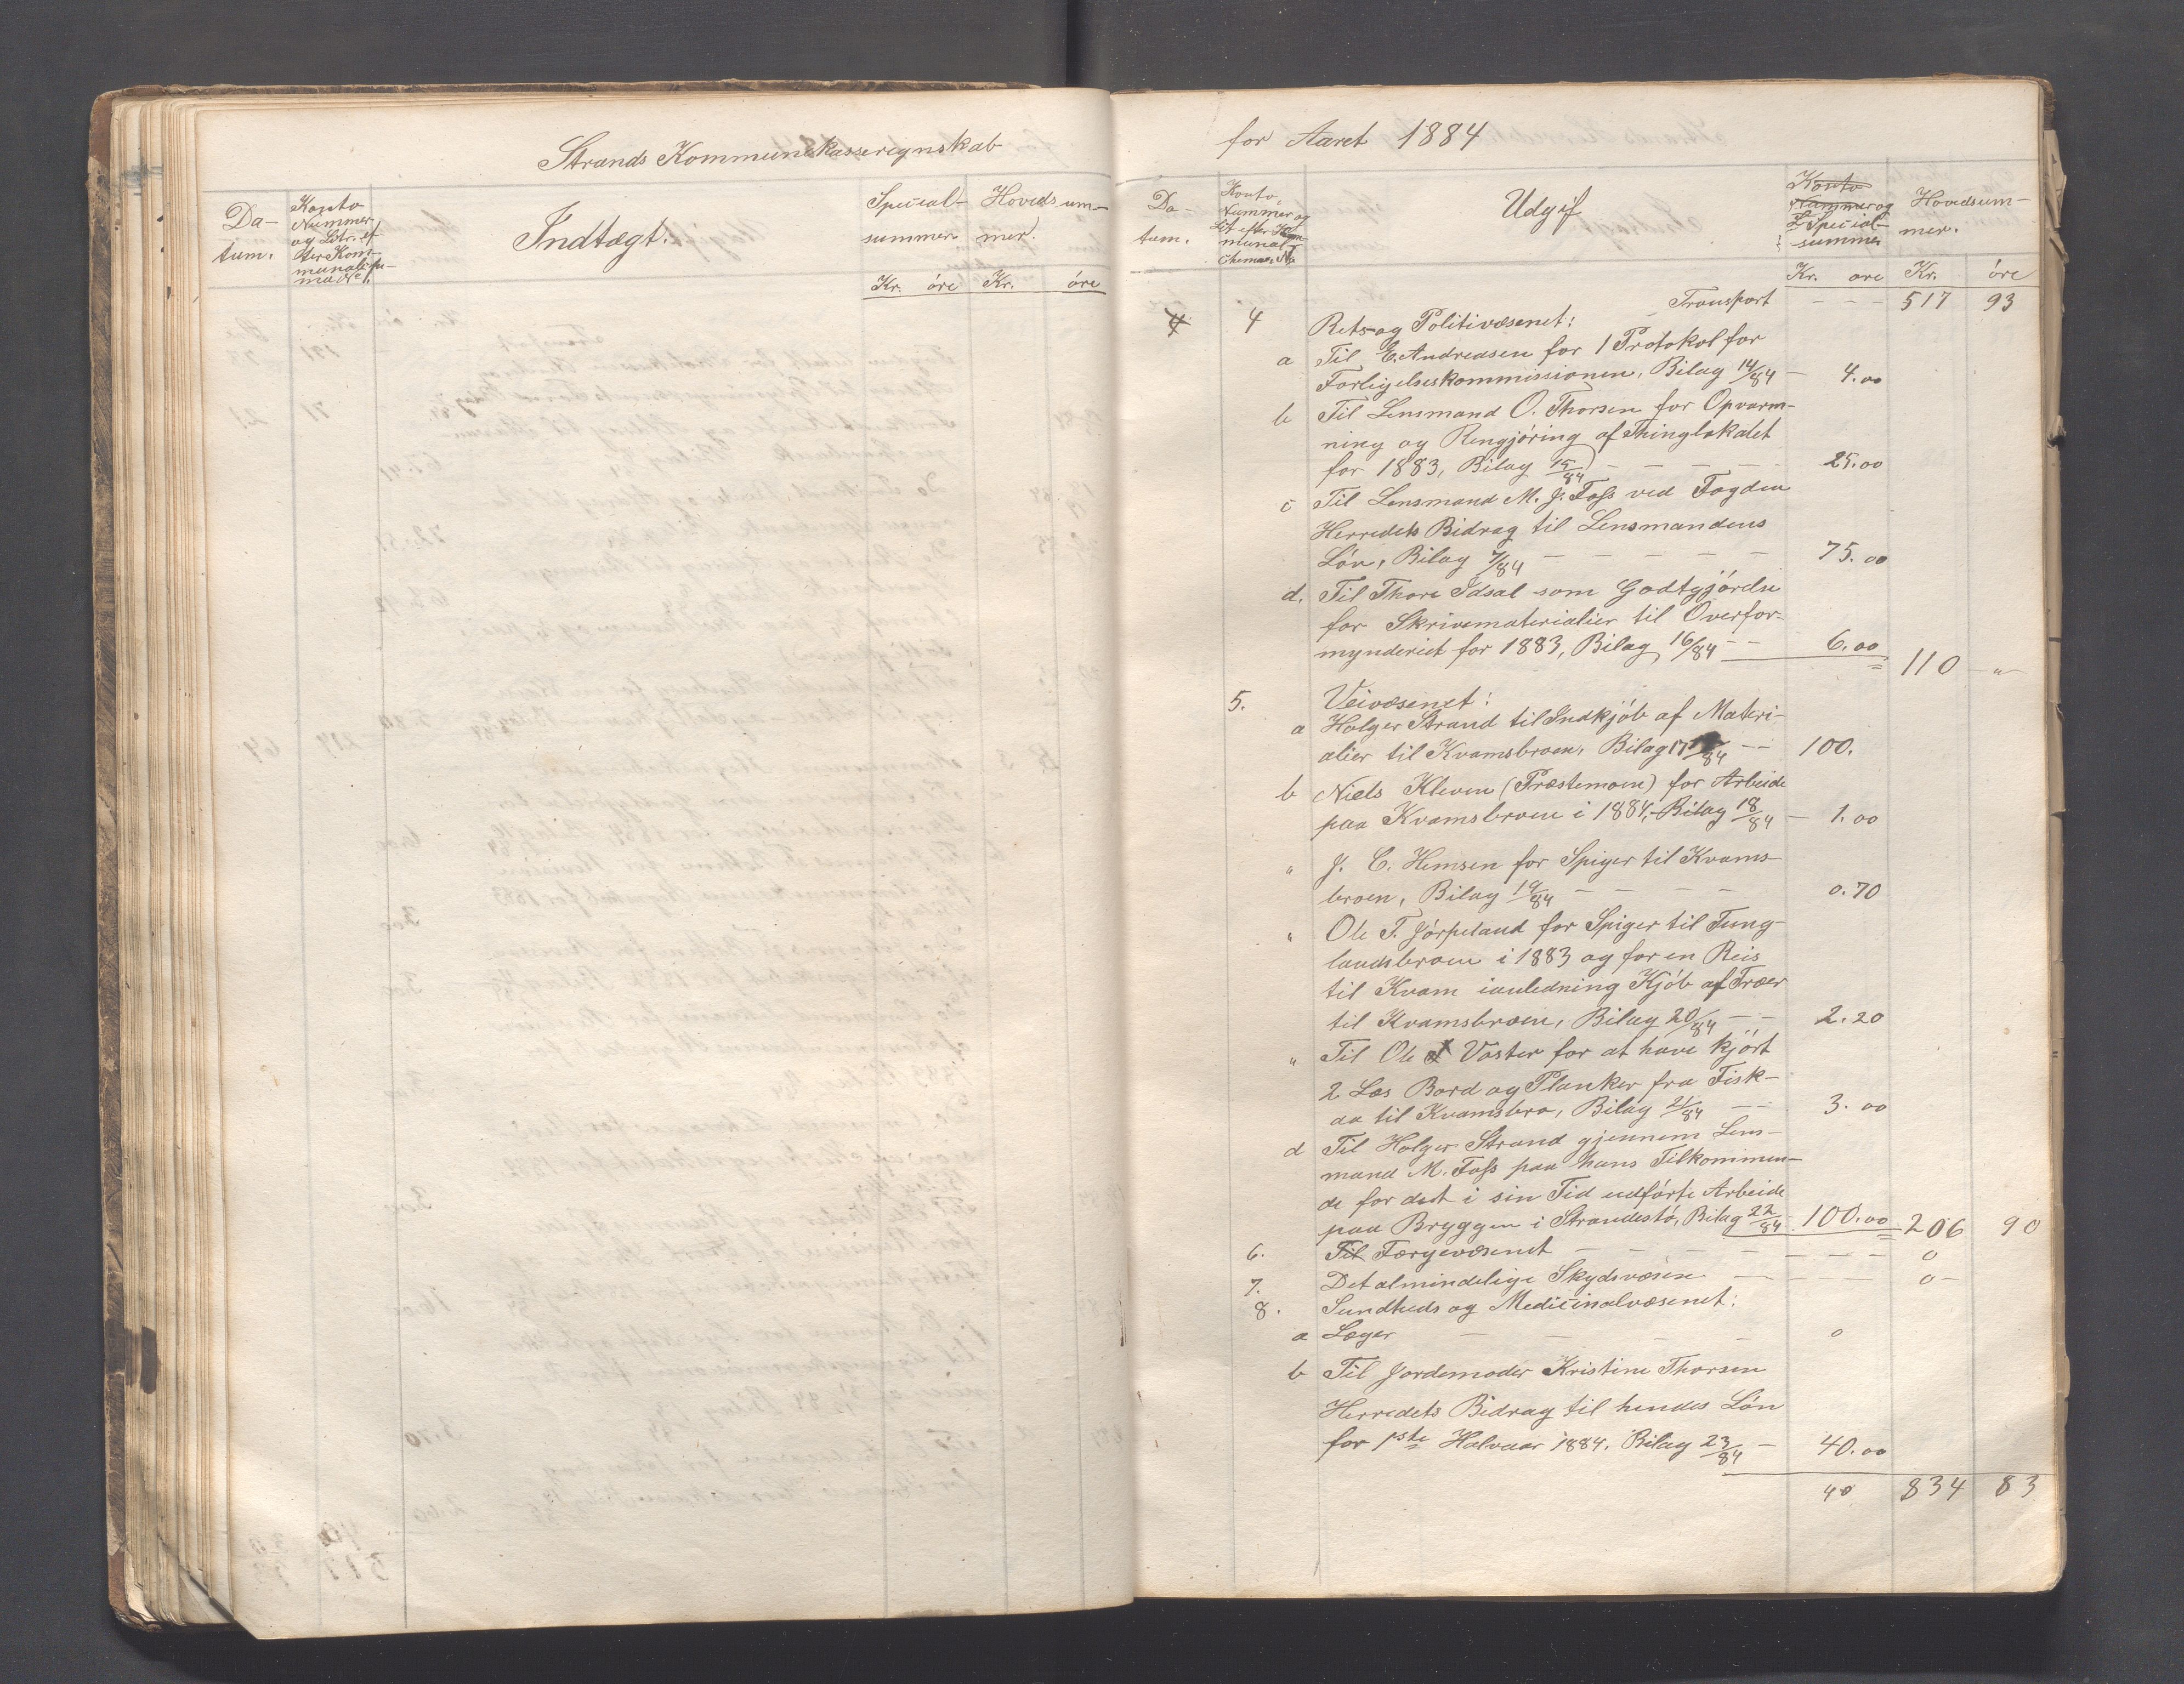 Strands Kommunekasseregnskab
Da-
tum.
Konto
Nummer
og Litr. ef
ter Kom-
munalske-
ma No 1.
Indtægt.
Special-
summer
Hovedsum-
mer.
Kr. öre Kr. öre
for Aaret 1884
Da-
tum.
Konto-
Nummer og
Lit. efter Kom-
munal-
skema No 1
Udgift
Konto
Nummer og
Special-
summer
Hovedsum-
mer.
Kr. öre Kr. öre
Transport - - - 517 93
4 4 Rets-og Politivæsenet:
a Til E. Andreasen for 1 Protokol for
Forligelseskommissionen, Bilag 14/84 - 4.00
b Til Lensmand O. Thorsen for Opvarm-
ning og Rengjöring af Thinglokalet
for 1883, Bilag 15/84 - - - - 25.00
c Til Lensmand M. J. Foss ved Fogden
Herredets Bidrag til Lensmandens
Lön, Bilag 7/84 - - - - - 75.00
d. Til Thore Idsal som Godtgjörelse
for Skrivematerialier til Overfor-
mynderiet for 1883, Bilag 16/84 - - 6.00
110 "
5. Veivæsenet:
a Holger Strand til Indkjöb af Materi-
alier til Kvamsbroen, Bilag 17/84 - - 100.
b Niels Kleven (Præstemoen) for Arbeide
paa Kvamsbroen i 1884, Bilag 18/84 - 1.00
" J. C. Hemsen for Spiger til Kvams-
broen, Bilag 19/84 - - - - 0.70
" Ole T. Jörpeland for Spiger til Tung-
landsbroen i 1883 og for en Reis
til Kvam ianledning Kjöb af Træer
til Kvamsbroen, Bilag 20/84 - - 2.20
" Til Ole Vaster for at have kjört
2 Læs Bord og Planker fra Fisk-
aa til Kvamsbro, Bilag 21/84 - - 3.00
d Til Holger Strand gjennem Lens-
mand M. Foss paa hans Tilkommen-
de for det i sin Tid udförte Arbeide
paa Bryggen i Strandestö, Bilag 22/84 100.00 206 90
6. Til Færgevæsenet - - - - - - - 0
7. Det almindelige Skydsvæsen - - - - 0 -
8. Sundheds og Medicinalvæsenet:
a Læger - - - - 0
b Til Jordemoder Kristine Thorsen
Herredets Bidrag til hendes Lön
for 1ste Halvaar 1884. Bilag 23/84 - 40.00
40 834 83